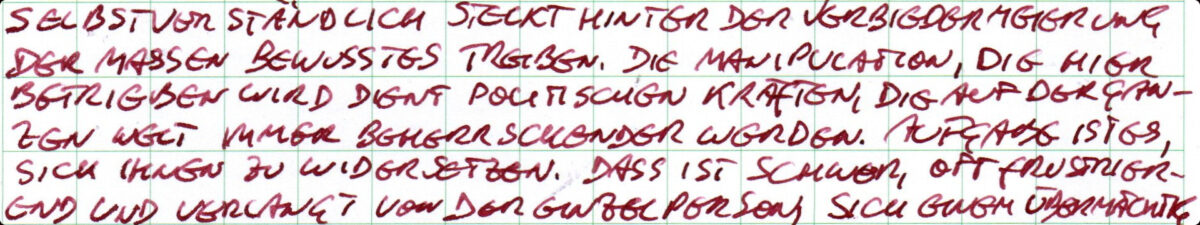 SELBSTVERSTÄNDLICH STECKT HINTER DER VERBIEDERMEIERUNG
DER MASSEN BEWUSSTES TREIBEN. DIE MANIPULATION, DIE HIER
BETRIEBEN WIRD DIENT POLITISCHEN KRÄFTEN, DIE AUF DER GAN-
ZEN WELT IMMER BEHERRSCHENDER WERDEN. AUFGABE IST ES,
SICH IHNEN ZU WIDERSETZEN. DASS IST SCHWER, OFT FRUSTRIER-
END UND VERLANGT VON DER EINZELPERSON, SICH EINEM ÜBERMÄCHTIG